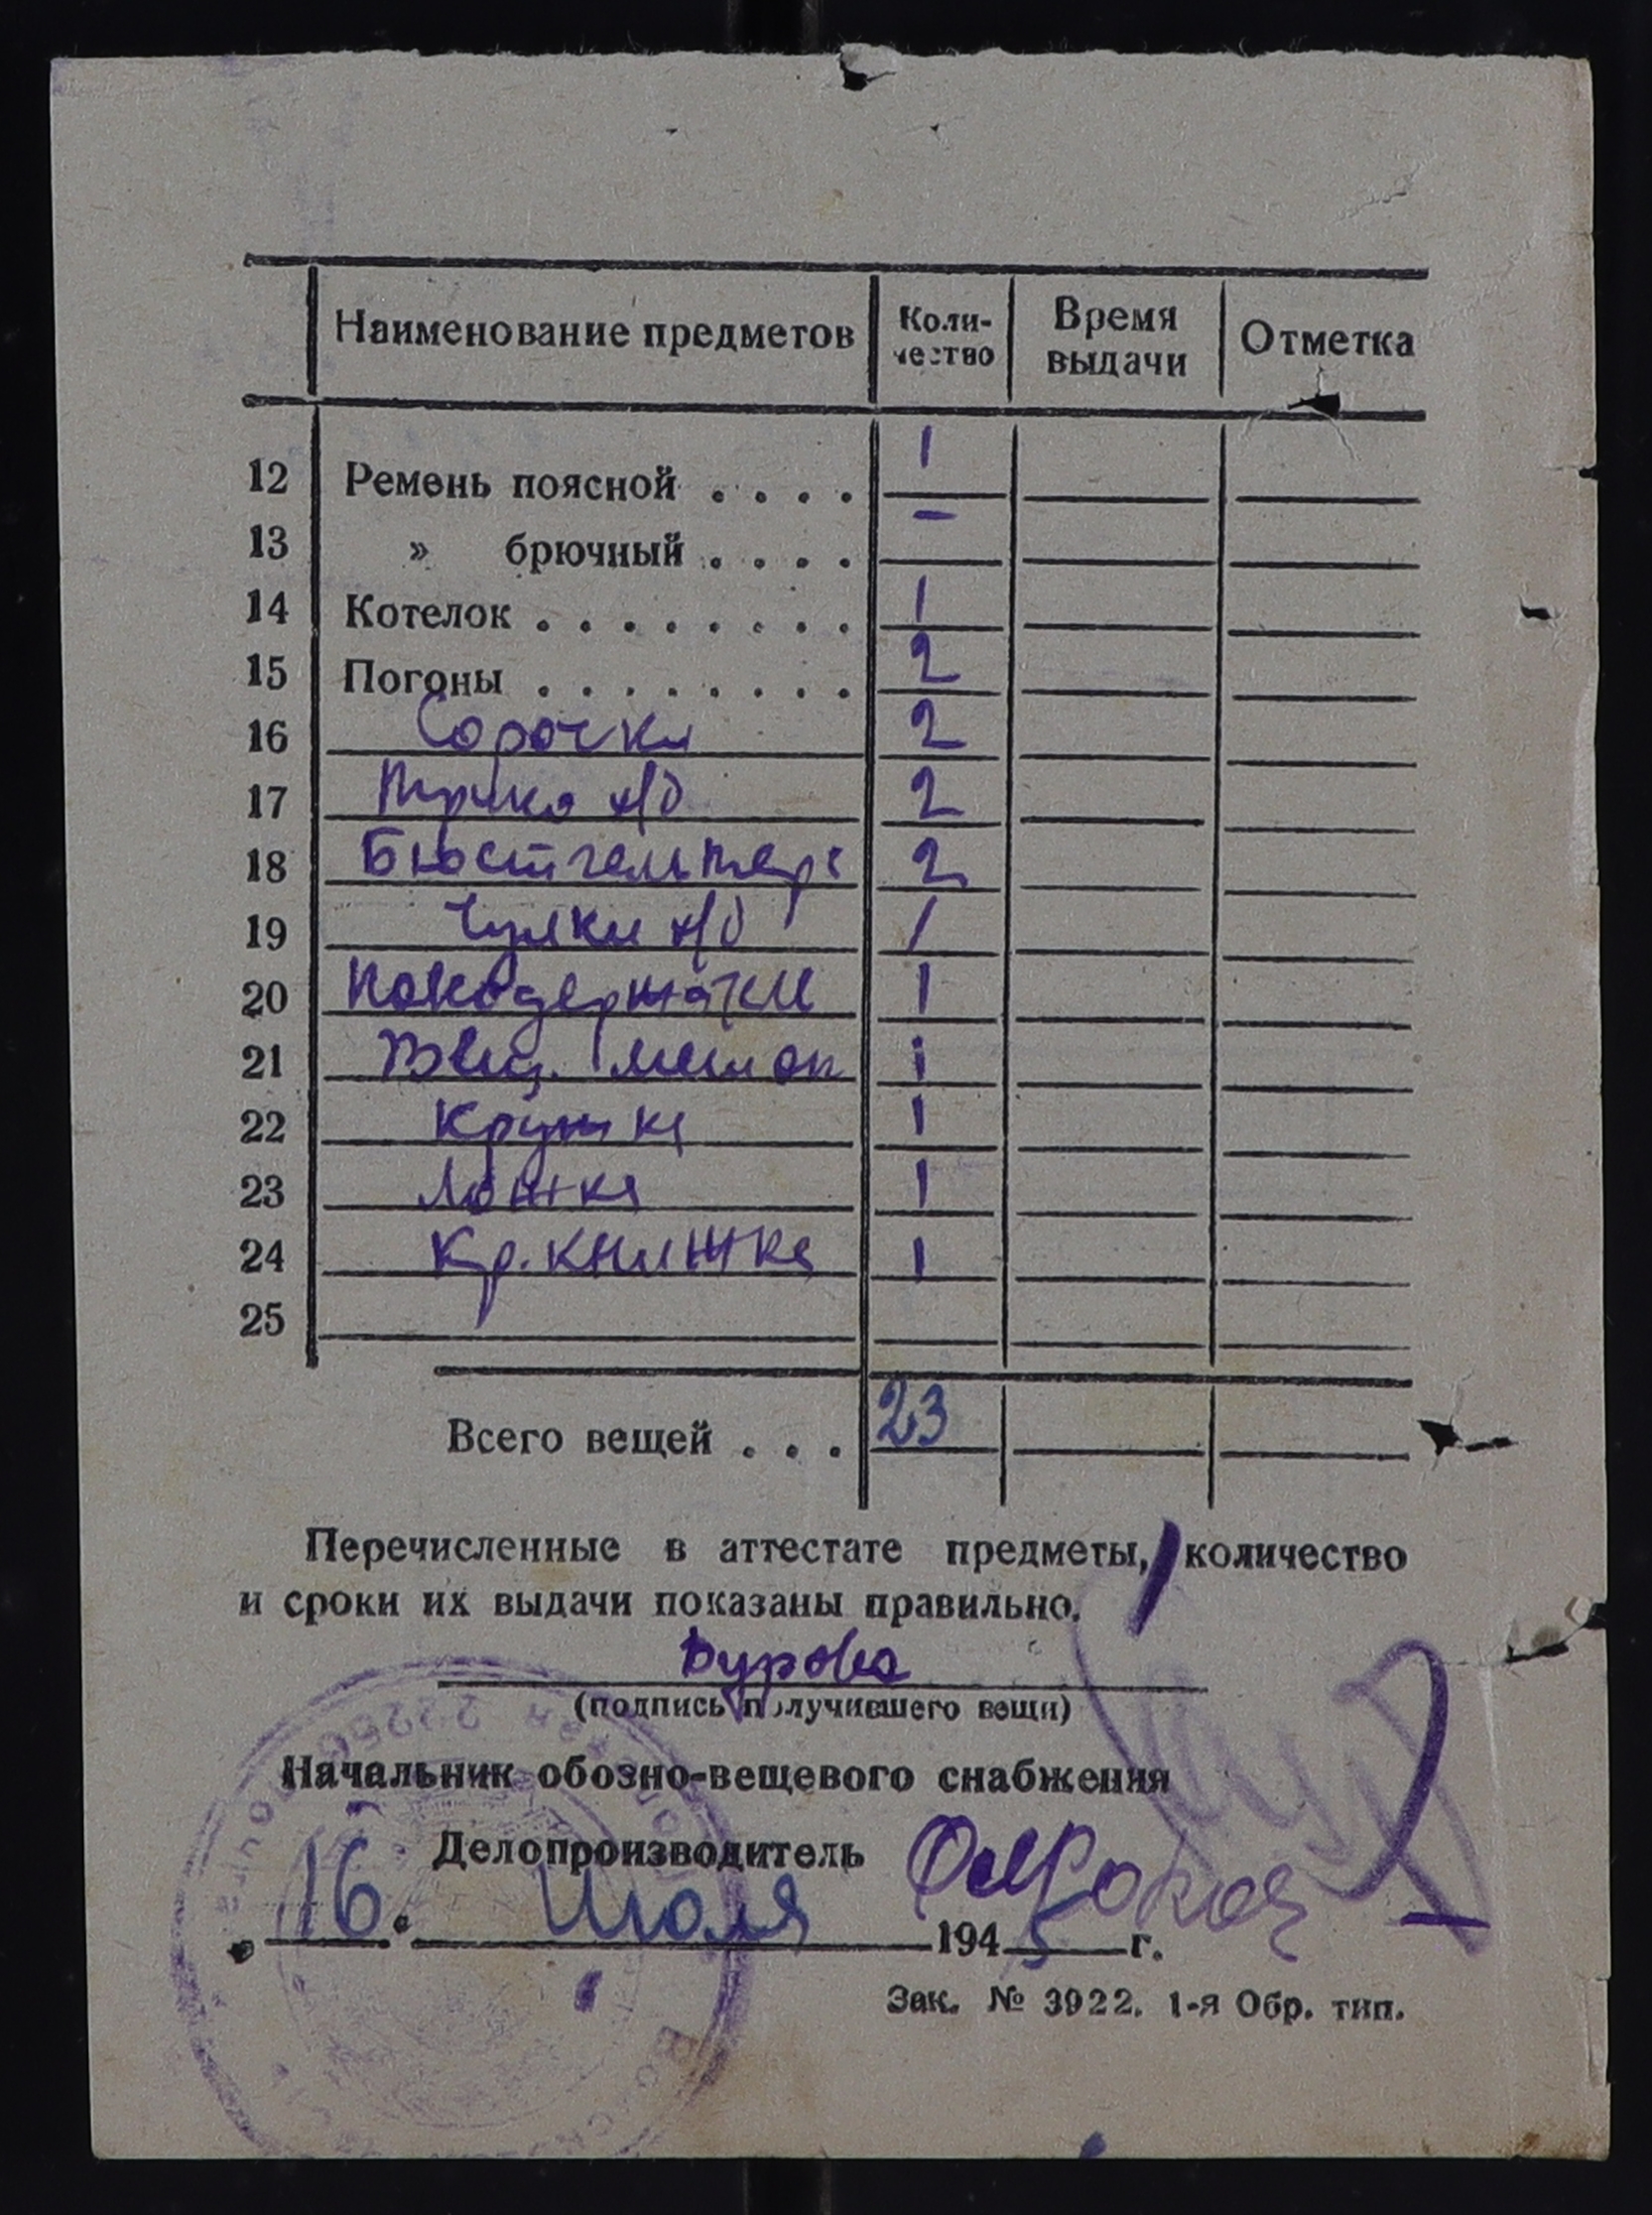 Наименование предметов Коли-чество Время выдачи Отметка
12 Ремень поясной . . . . 1
13 » брючный . . . . –
14 Котелок . . . . . . . . 1
15 Погоны . . . . . . . . 2
16 Сорочки 2
17 Трико х/б 2
18 Бюстгельтер 2
19 Чулки х/б 1
20 1
21 Вещ. мешок 1
22 Кружка 1
23 Ложка 1
24 Кр. книжка 1
25
Всего вещей . . . 23
Перечисленные в аттестате предметы, количество
и сроки их выдачи показаны правильно.
Бурова
(подпись получившего вещи)
Начальник обозно-вещевого снабжения
Делопроизводитель
„16" Июля 1945 г.
Зак. № 3922. 1-я Обр. тип.